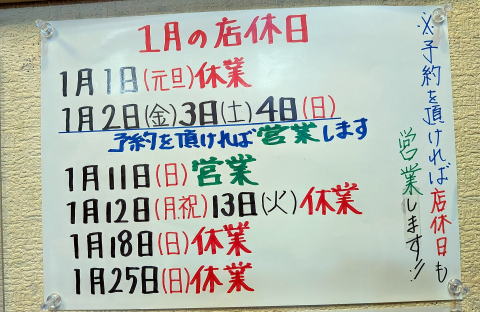 1月の店休日
1月1日(元旦)休業
1月2日(金)3日(土)4日(日)
予約を頂ければ営業します
1月11日(日)営業
1月12日(月祝)13日(火)休業
1月18日(日)休業
1月25日(日)休業
※予約を頂ければ店休日も
営業します!!